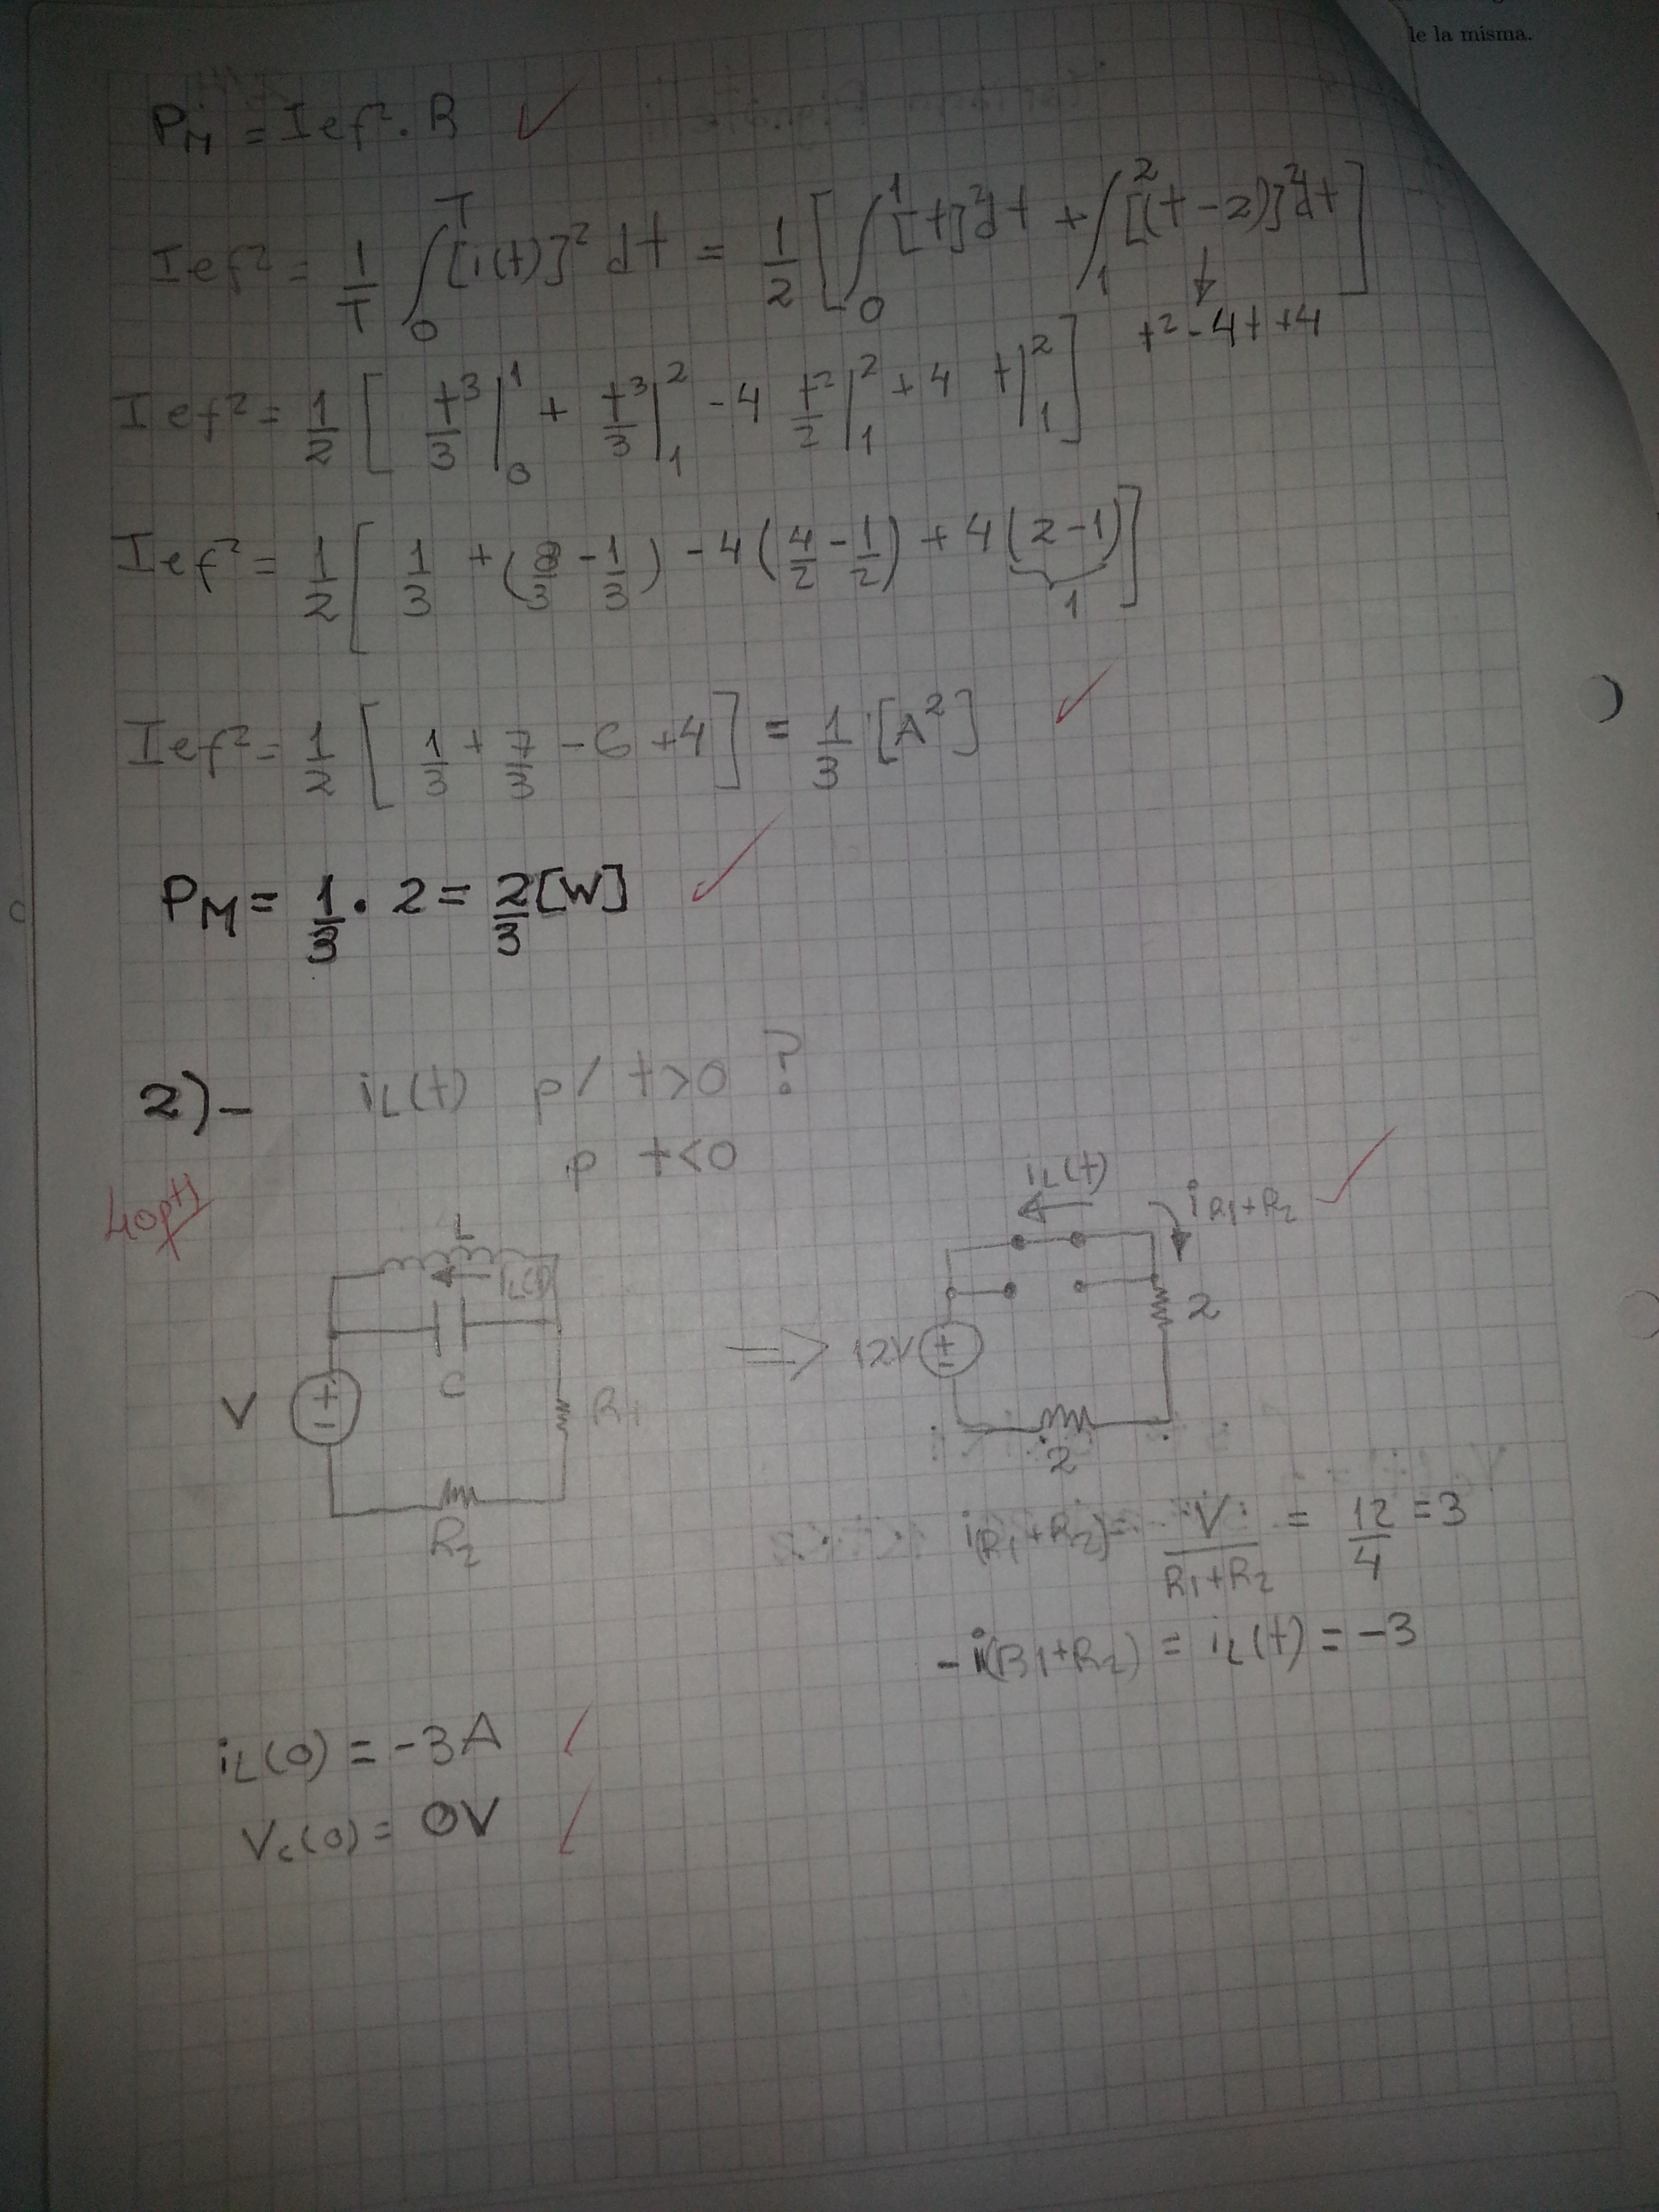 le la misma.
P_M = Ief². R ✓
Ief² = 1/T ∫₀ᵀ [i(t)]² dt = 1/2 [ ∫₀¹ [t]² dt + ∫₁² [(t-2)]² dt ]
↓
t² - 4t + 4
Ief² = 1/2 [ t³/3 |₀¹ + t³/3 |₁² - 4 t²/2 |₁² + 4 t |₁² ]
Ief² = 1/2 [ 1/3 + (8/3 - 1/3) - 4 (4/2 - 1/2) + 4 (2 - 1) ]
1
Ief² = 1/2 [ 1/3 + 7/3 - 6 + 4 ] = 1/3 [A²] ✓
P_M = 1/3 . 2 = 2/3 [W] ✓
2)- iL(t) p/ t>0 ?
p t<0
40pts
L
iL(t)
C
V
R1
R2
⇒
iL(t)
iR1+R2 ✓
12V
2
2
i(R1+R2) = V/(R1+R2) = 12/4 = 3
-i(R1+R2) = iL(t) = -3
iL(0) = -3A ✓
Vc(0) = 0V ✓